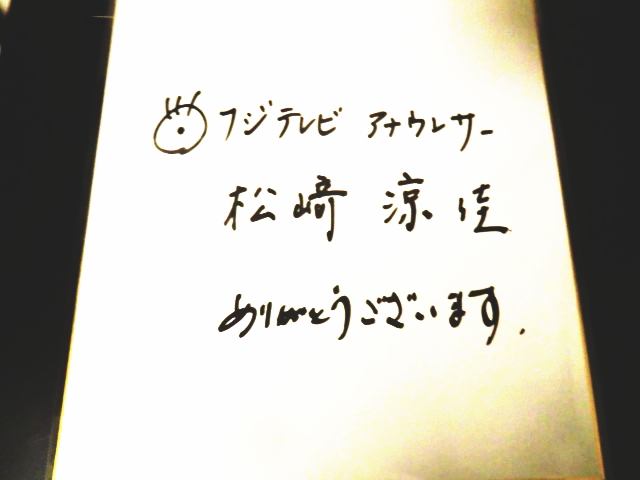 フジテレビ アナウンサー
松﨑 涼佳
ありがとうございます.